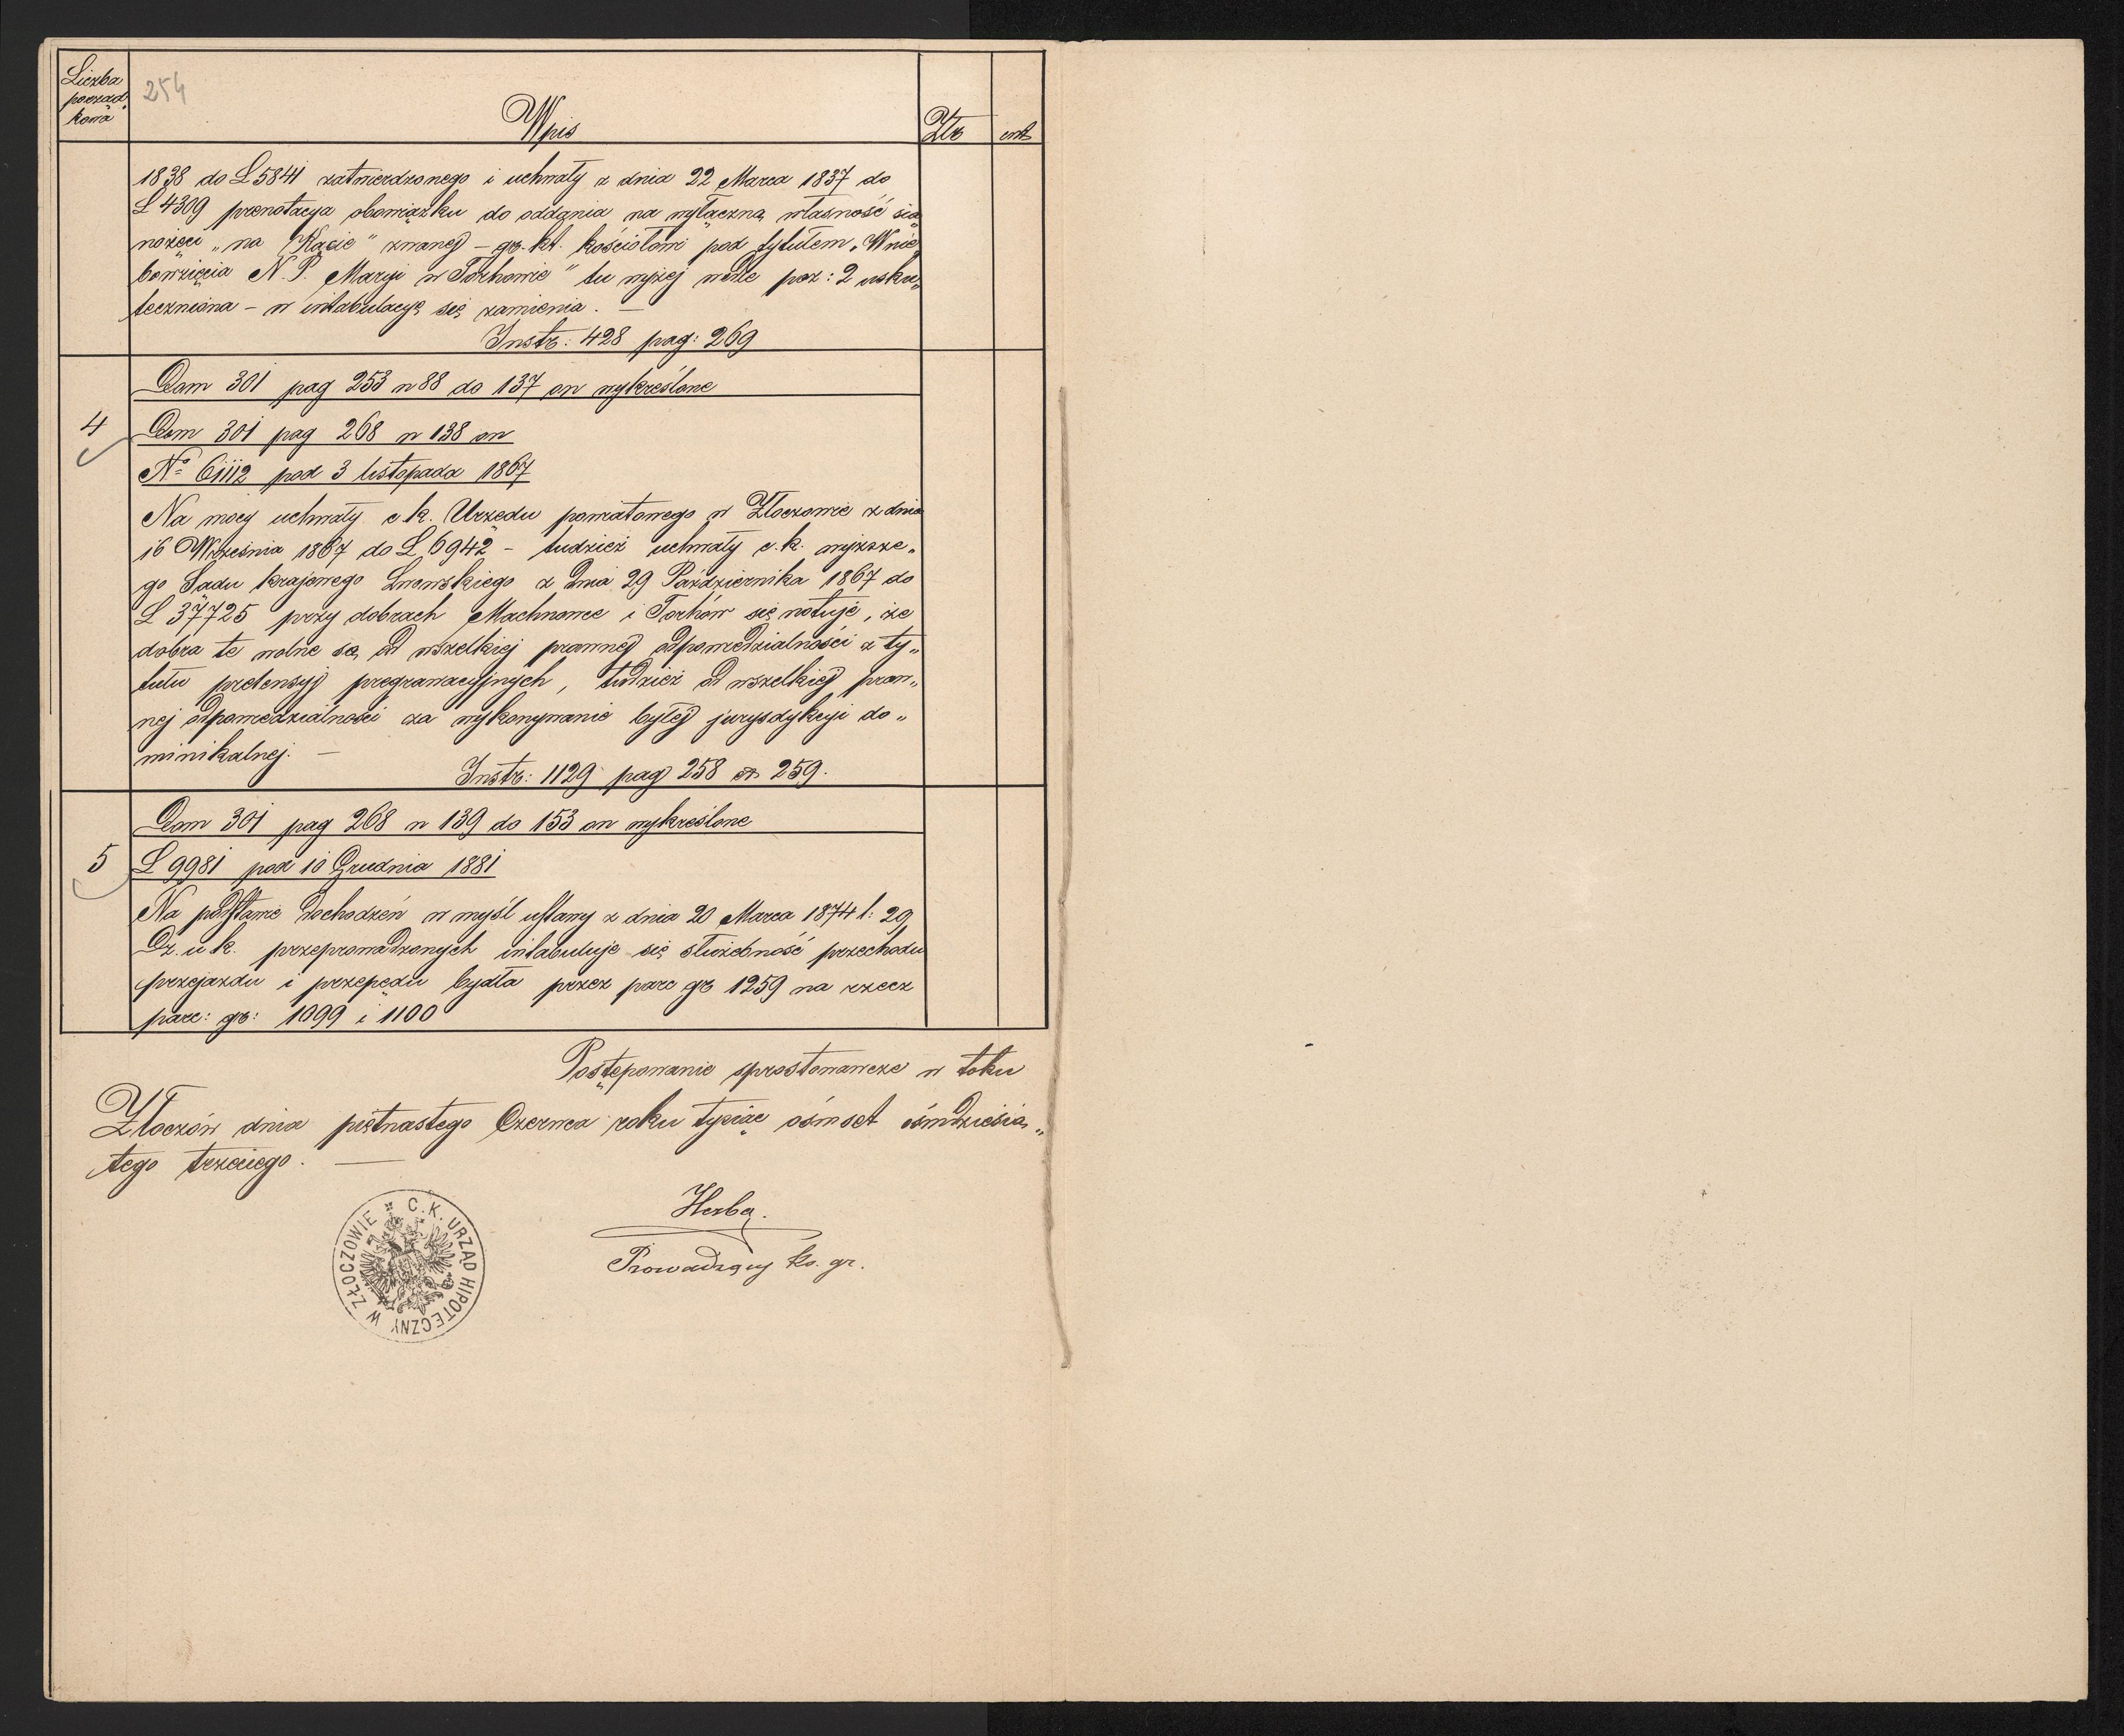 Liczba
porząd.
kowa
254
Wpis
Złr
cnt
1838 do L 5841 zatwierdzonego i uchwały z dnia 22 Marca 1837 do
L 4309 prenotacya obowiązku do oddania na wyłączną własność sia„
nożęci „na Kącie" zwanej – gr. kt. kościołowi pod tytułem „Wnie„
bowzięcia N. P. Maryi w Torhowie" tu wyżej wedle poz: 2 usku„
teczniona – w intabulacyę się zamienia. —
Instr: 428 pag: 269
Dom 301 pag 253 n 88 do 137 on wykreślone
4
Dom 301 pag 268 n 138 on
No 61112 pod 3 listopada 1867
Na mocy uchwały c k. Urzędu powiatowego w Złoczowie z dnia
16 Września 1867 do L 6942 – tudzież uchwały c. k. wyższe„
go Sądu krajowego Lwowskiego z dnia 29 Października 1867 do
L 37725 przy dobrach Machnowce i Torhów się notuje, że
dobra te wolne są od wszelkiej prawnej odpowiedzialności z ty„
tułu pretensyj pregrawacyjnych, tudzież od wszelkiej praw„
nej odpowiedzialności za wykonywanie byłej jurysdykcyi do„
minikalnej. —
Instr: 1129 pag 258 et 259.
Dom 301 pag 268 n 139 do 153 on wykreślone
5
L 9981 pod 10 Grudnia 1881
Na podstawie dochodzeń w myśl ustawy z dnia 20 Marca 1874 l: 29
Dz. u k. przeprowadzonych intabuluje się służebność przechodu
przejazdu i przepędu bydła przez parc gr 1259 na rzecz
parc: gr: 1099 i 1100
Postępowanie sprostowawcze w toku
Złoczów dnia piętnastego Czerwca roku tysiąc ośmset ośmdziesią„
tego trzeciego. —
Prowadzący ks. gr.
C. K. URZĄD HIPOTECZNY W ZŁOCZOWIE